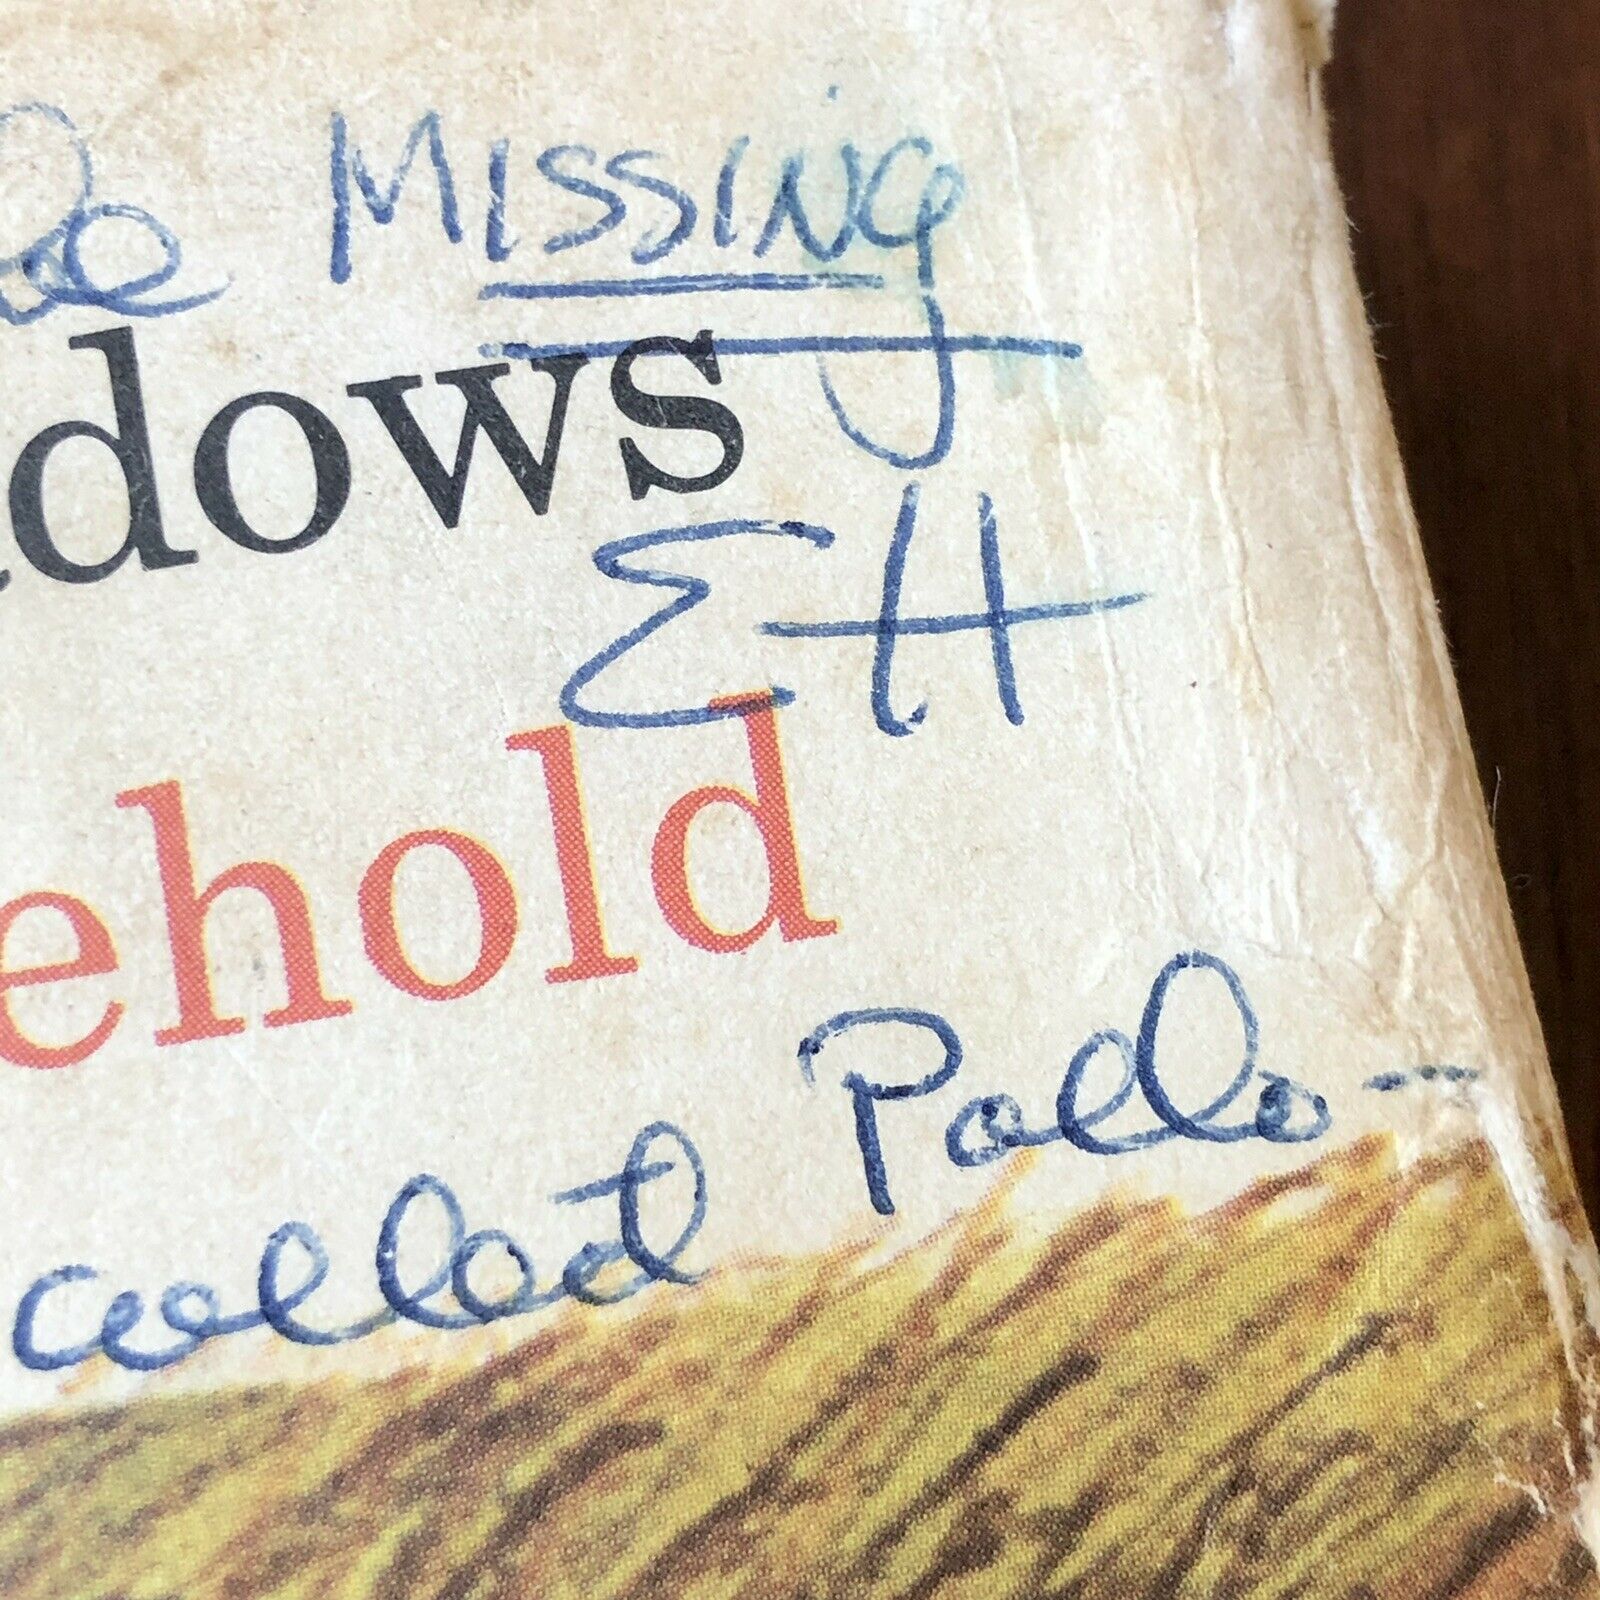 MISSINg
dows
EH
ehold
called Pollo-